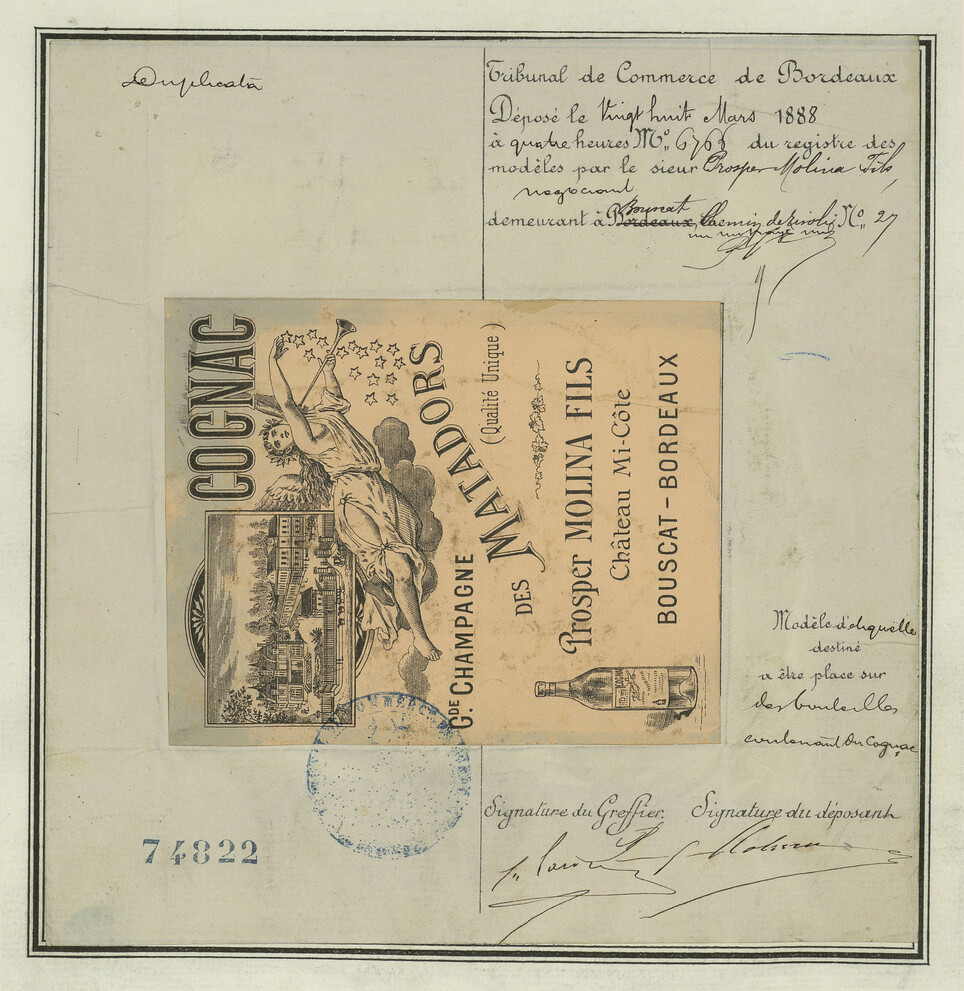 Duplicata
Tribunal de Commerce de Bordeaux
Déposé le Vingt huit Mars 1888
à quatre heures No 6766 du registre des
modèles par le sieur Prosper Molina Fils,
negociant
Bouscat
demeurant à Bordeaux, Chemin de Rivoli No 27
COGNAC
Gde CHAMPAGNE
DES MATADORS
(Qualité Unique)
Prosper MOLINA FILS
Château Mi-Côte
BOUSCAT-BORDEAUX
Modèle d'étiquette
destiné
a être place sur
des bouteilles
contenant du Cognac
Signature du Greffier. Signature du déposant
Molina
74822